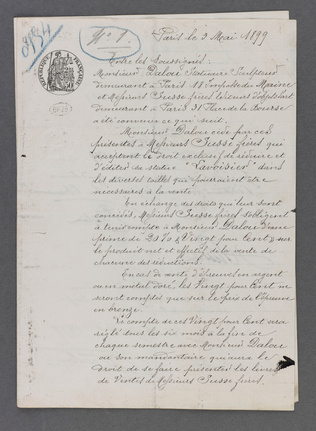 N° 1
Paris le 3 Mai 1899
Entre les Soussignés
Monsieur Dalou Statuaire Sculpteur
demeurant à Paris 18 Impasse du Maine
et Messieurs Susse frères
demeurant à Paris 31 Place de la Bourse
a été convenu ce qui suit.
Monsieur Dalou cède par ces
présentes à Messieurs Susse frères qui
acceptent le droit exclusif de réduire et
d'éditer sa statue "Lavoisier" dans
les diverses tailles qui pourraient être
nécessaires à la vente
En échange des droits qui leur sont
concédés, Messieurs Susse frères s'obligent
à tenir compte à Monsieur Dalou d'une
prime de 20 % (Vingt pour Cent) sur
le produit net et effectif de la vente de
chacune des réductions.
En cas de vente d'épreuve en argent
ou en métal doré, les Vingt pour Cent ne
seront comptés que sur le prix de l'épreuve
en bronze
Le compte de ces Vingt pour Cent sera
réglé tous les six mois à la fin de
chaque semestre avec Monsieur Dalou
ou son mandataire qui aura le
droit de se faire présenter les livres
de Vente de Messieurs Susse frères.